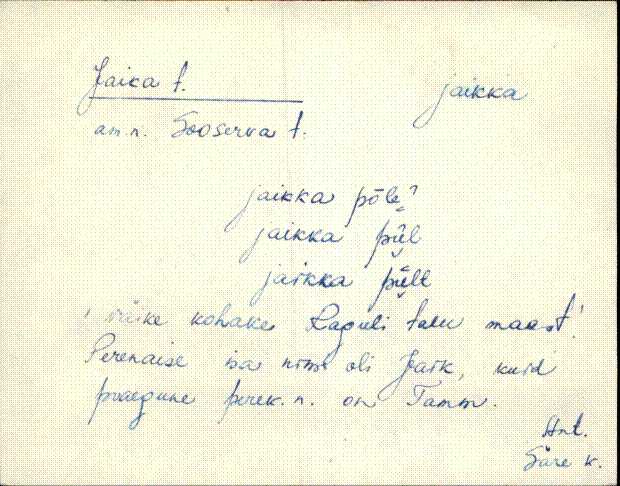 Jaika t.
jaikka
am.n. Sooserva t.
jaikka põle?
jaikka pi̮i̮l
jaikka pi̮i̮lt
väike kohake Raguli talu maast!
Perenaise isa nimi oli Jaik, kuid
praegune perek.n. on Tamm.
Hnt.
Säre k.